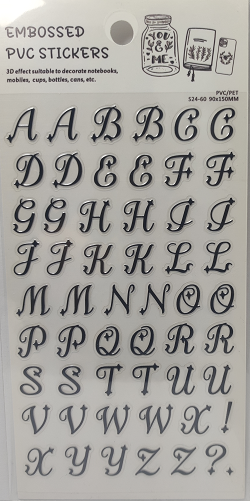 EMBOSSED
PVC STICKERS
3D effect suitable to decorate notebooks,
mobiles, cups, bottles, cans, etc.
YOU
&
ME
PVC/PET
S24-60 90x150MM
A A B B C C
D D E E F F
G G H H I I
J J K K L L
M M N N O O
P P Q Q R R
S S T T U U
V V W W X !
X Y Y Z Z ? .